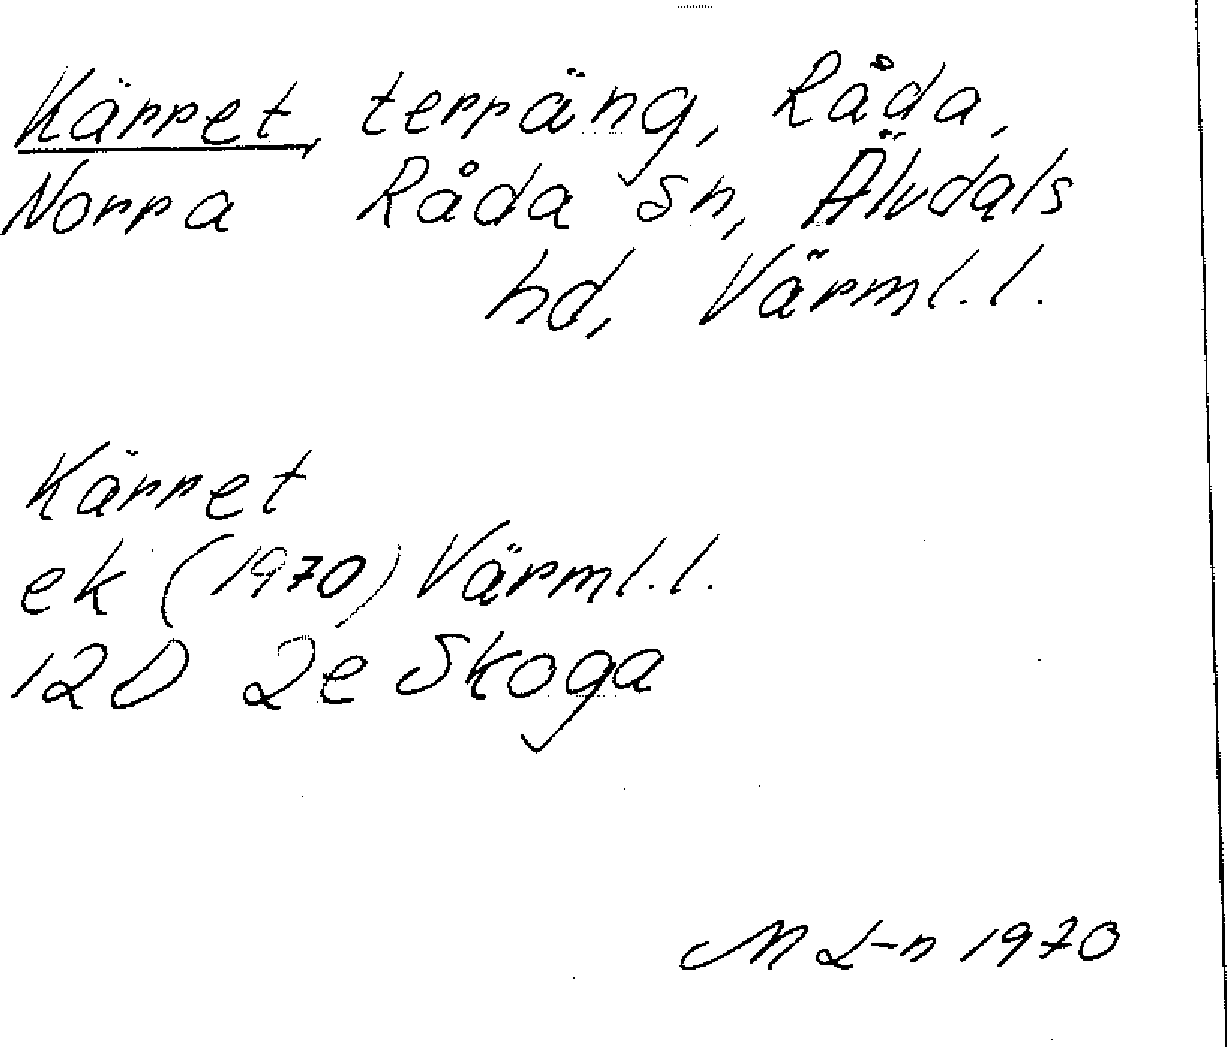 Kärret, terräng, Råda,
Norra Råda sn, Älvdals
hd, Värml. l.
Kärret
ek (1970) Värml. l.
12D 2e Skoga
M L-n 1970